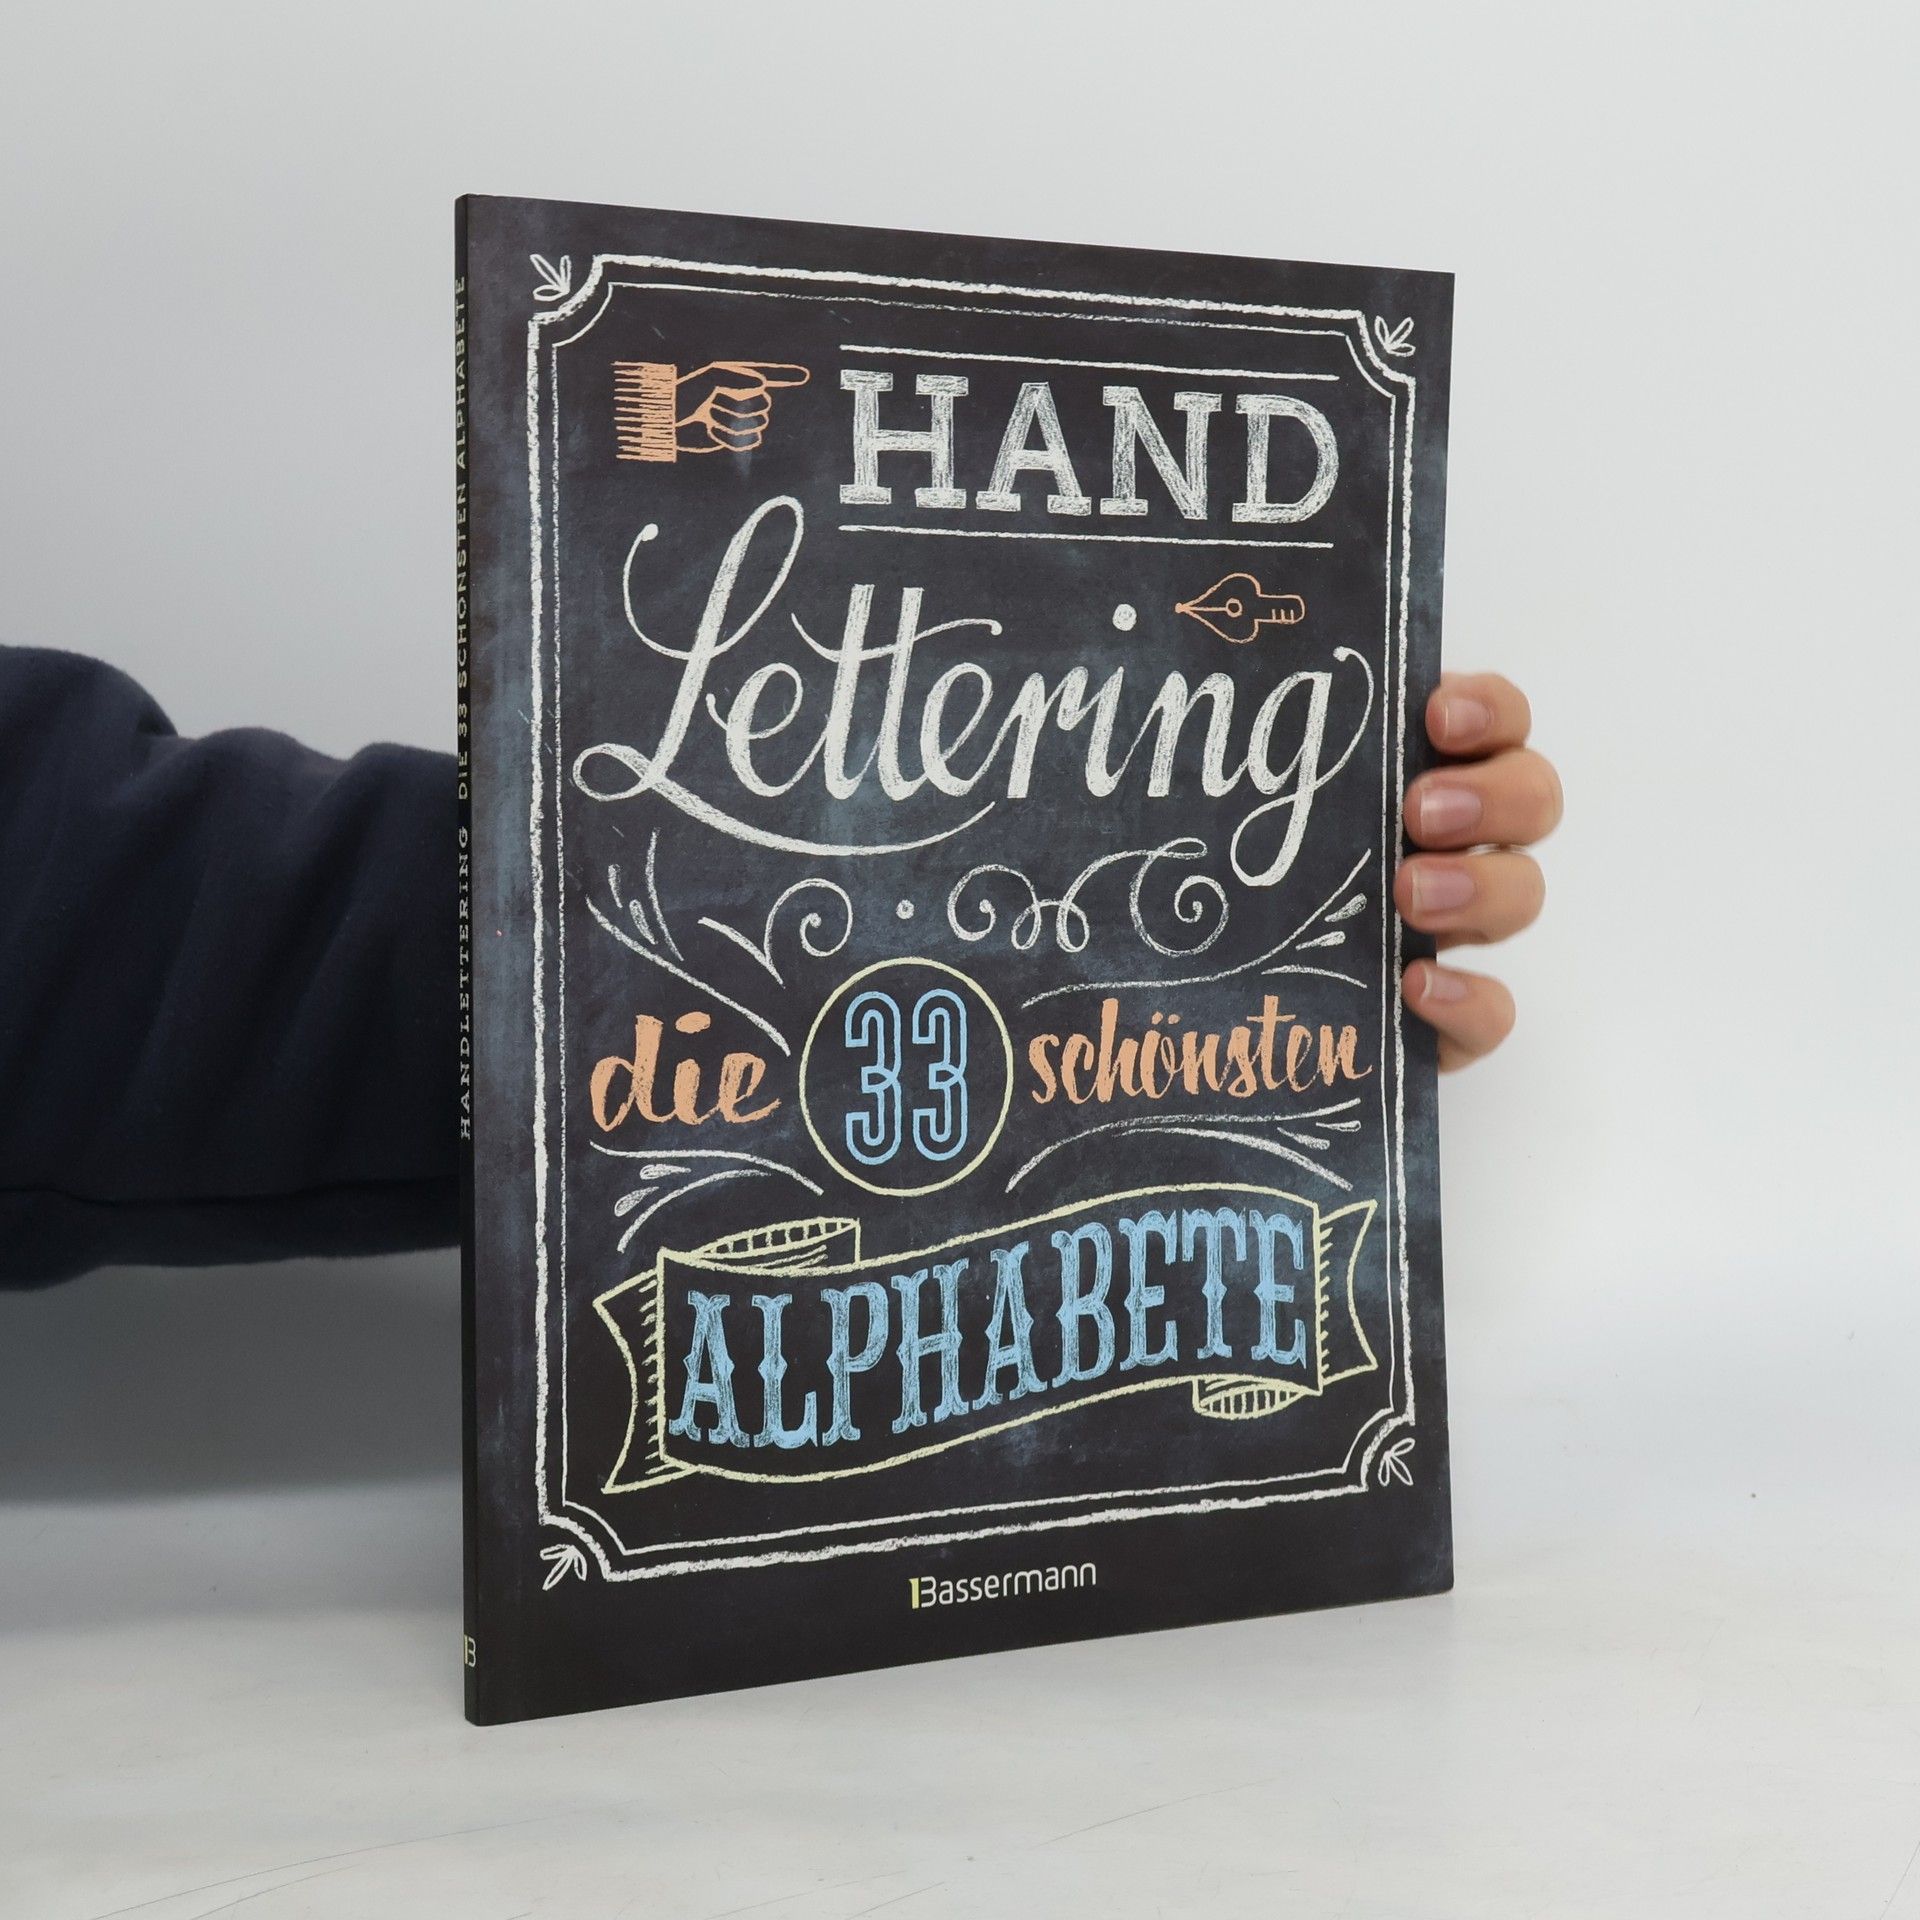 HAND
Lettering
die 33 schönsten
ALPHABETE
Bassermann
HANDLETTERING DIE 33 SCHÖNSTEN ALPHABETE
B